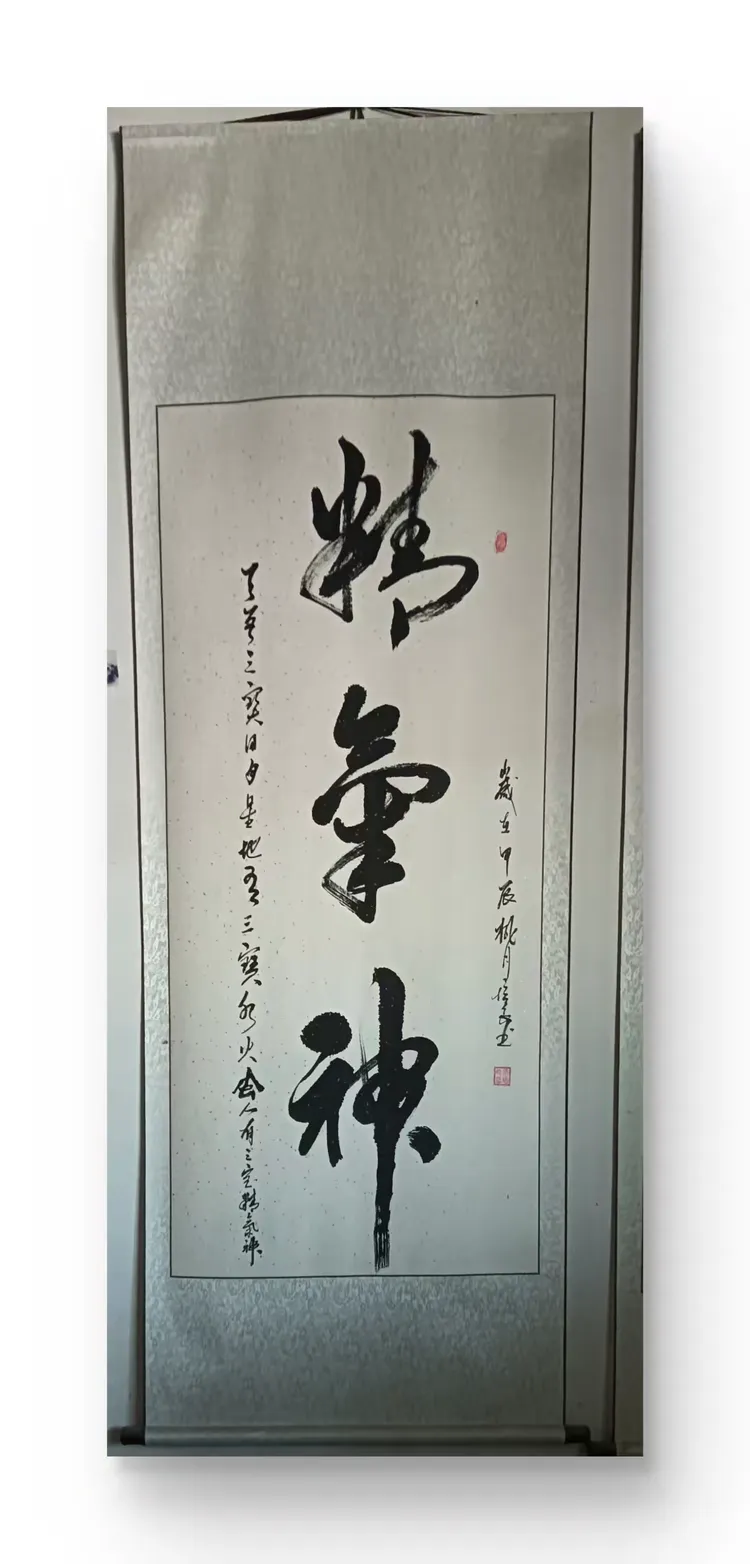 歲在甲辰桃月书
精氣神
天有三寶日月星地有三寶水火風人有三宝精氣神